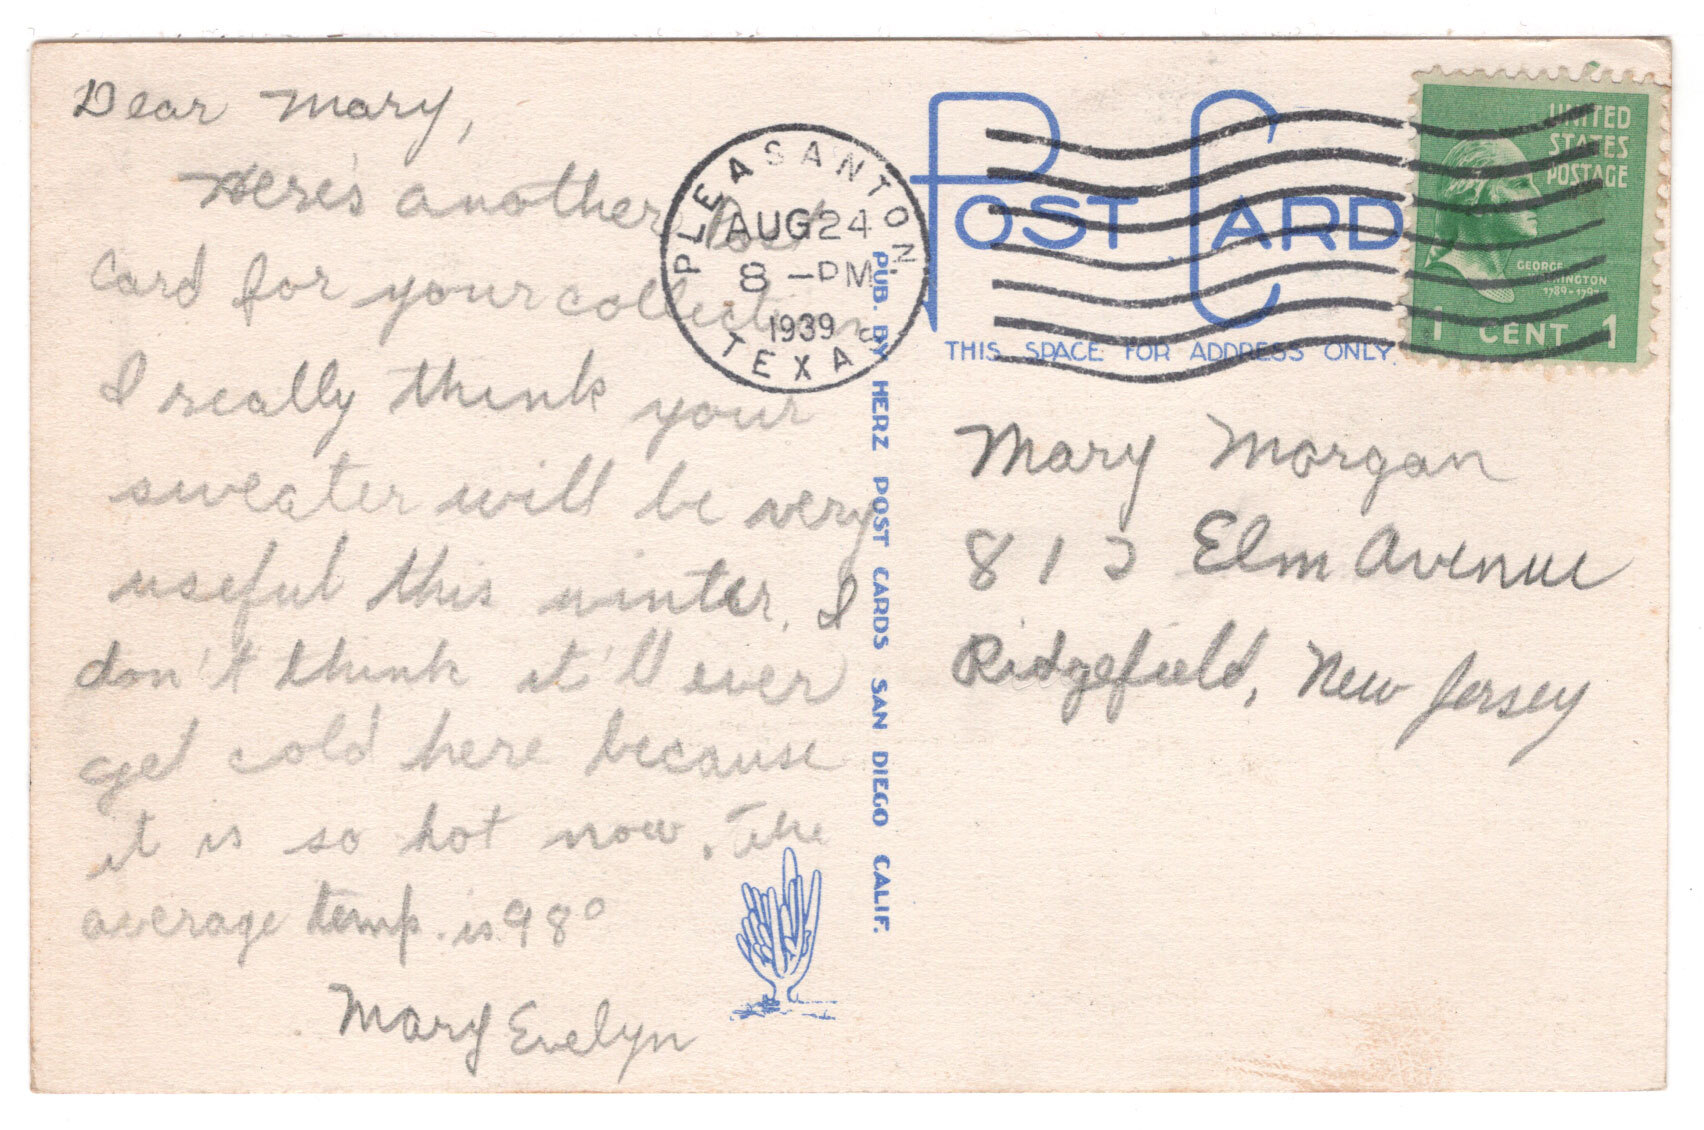 Dear Mary,
Here's another Post
Card for your collection
I really think your
sweater will be very
useful this winter. I
don't think it'll ever
get cold here because
it is so hot now. The
average temp. is 98°
Mary Evelyn
PLEASANTON
AUG 24
8 - PM
1939
TEXAS
PUB. BY HERZ POST CARDS SAN DIEGO CALIF.
POST CARD
THIS SPACE FOR ADDRESS ONLY
UNITED
STATES
POSTAGE
GEORGE
WASHINGTON
1789-1797
1 CENT 1
Mary Morgan
812 Elm Avenue
Ridgefield, New Jersey